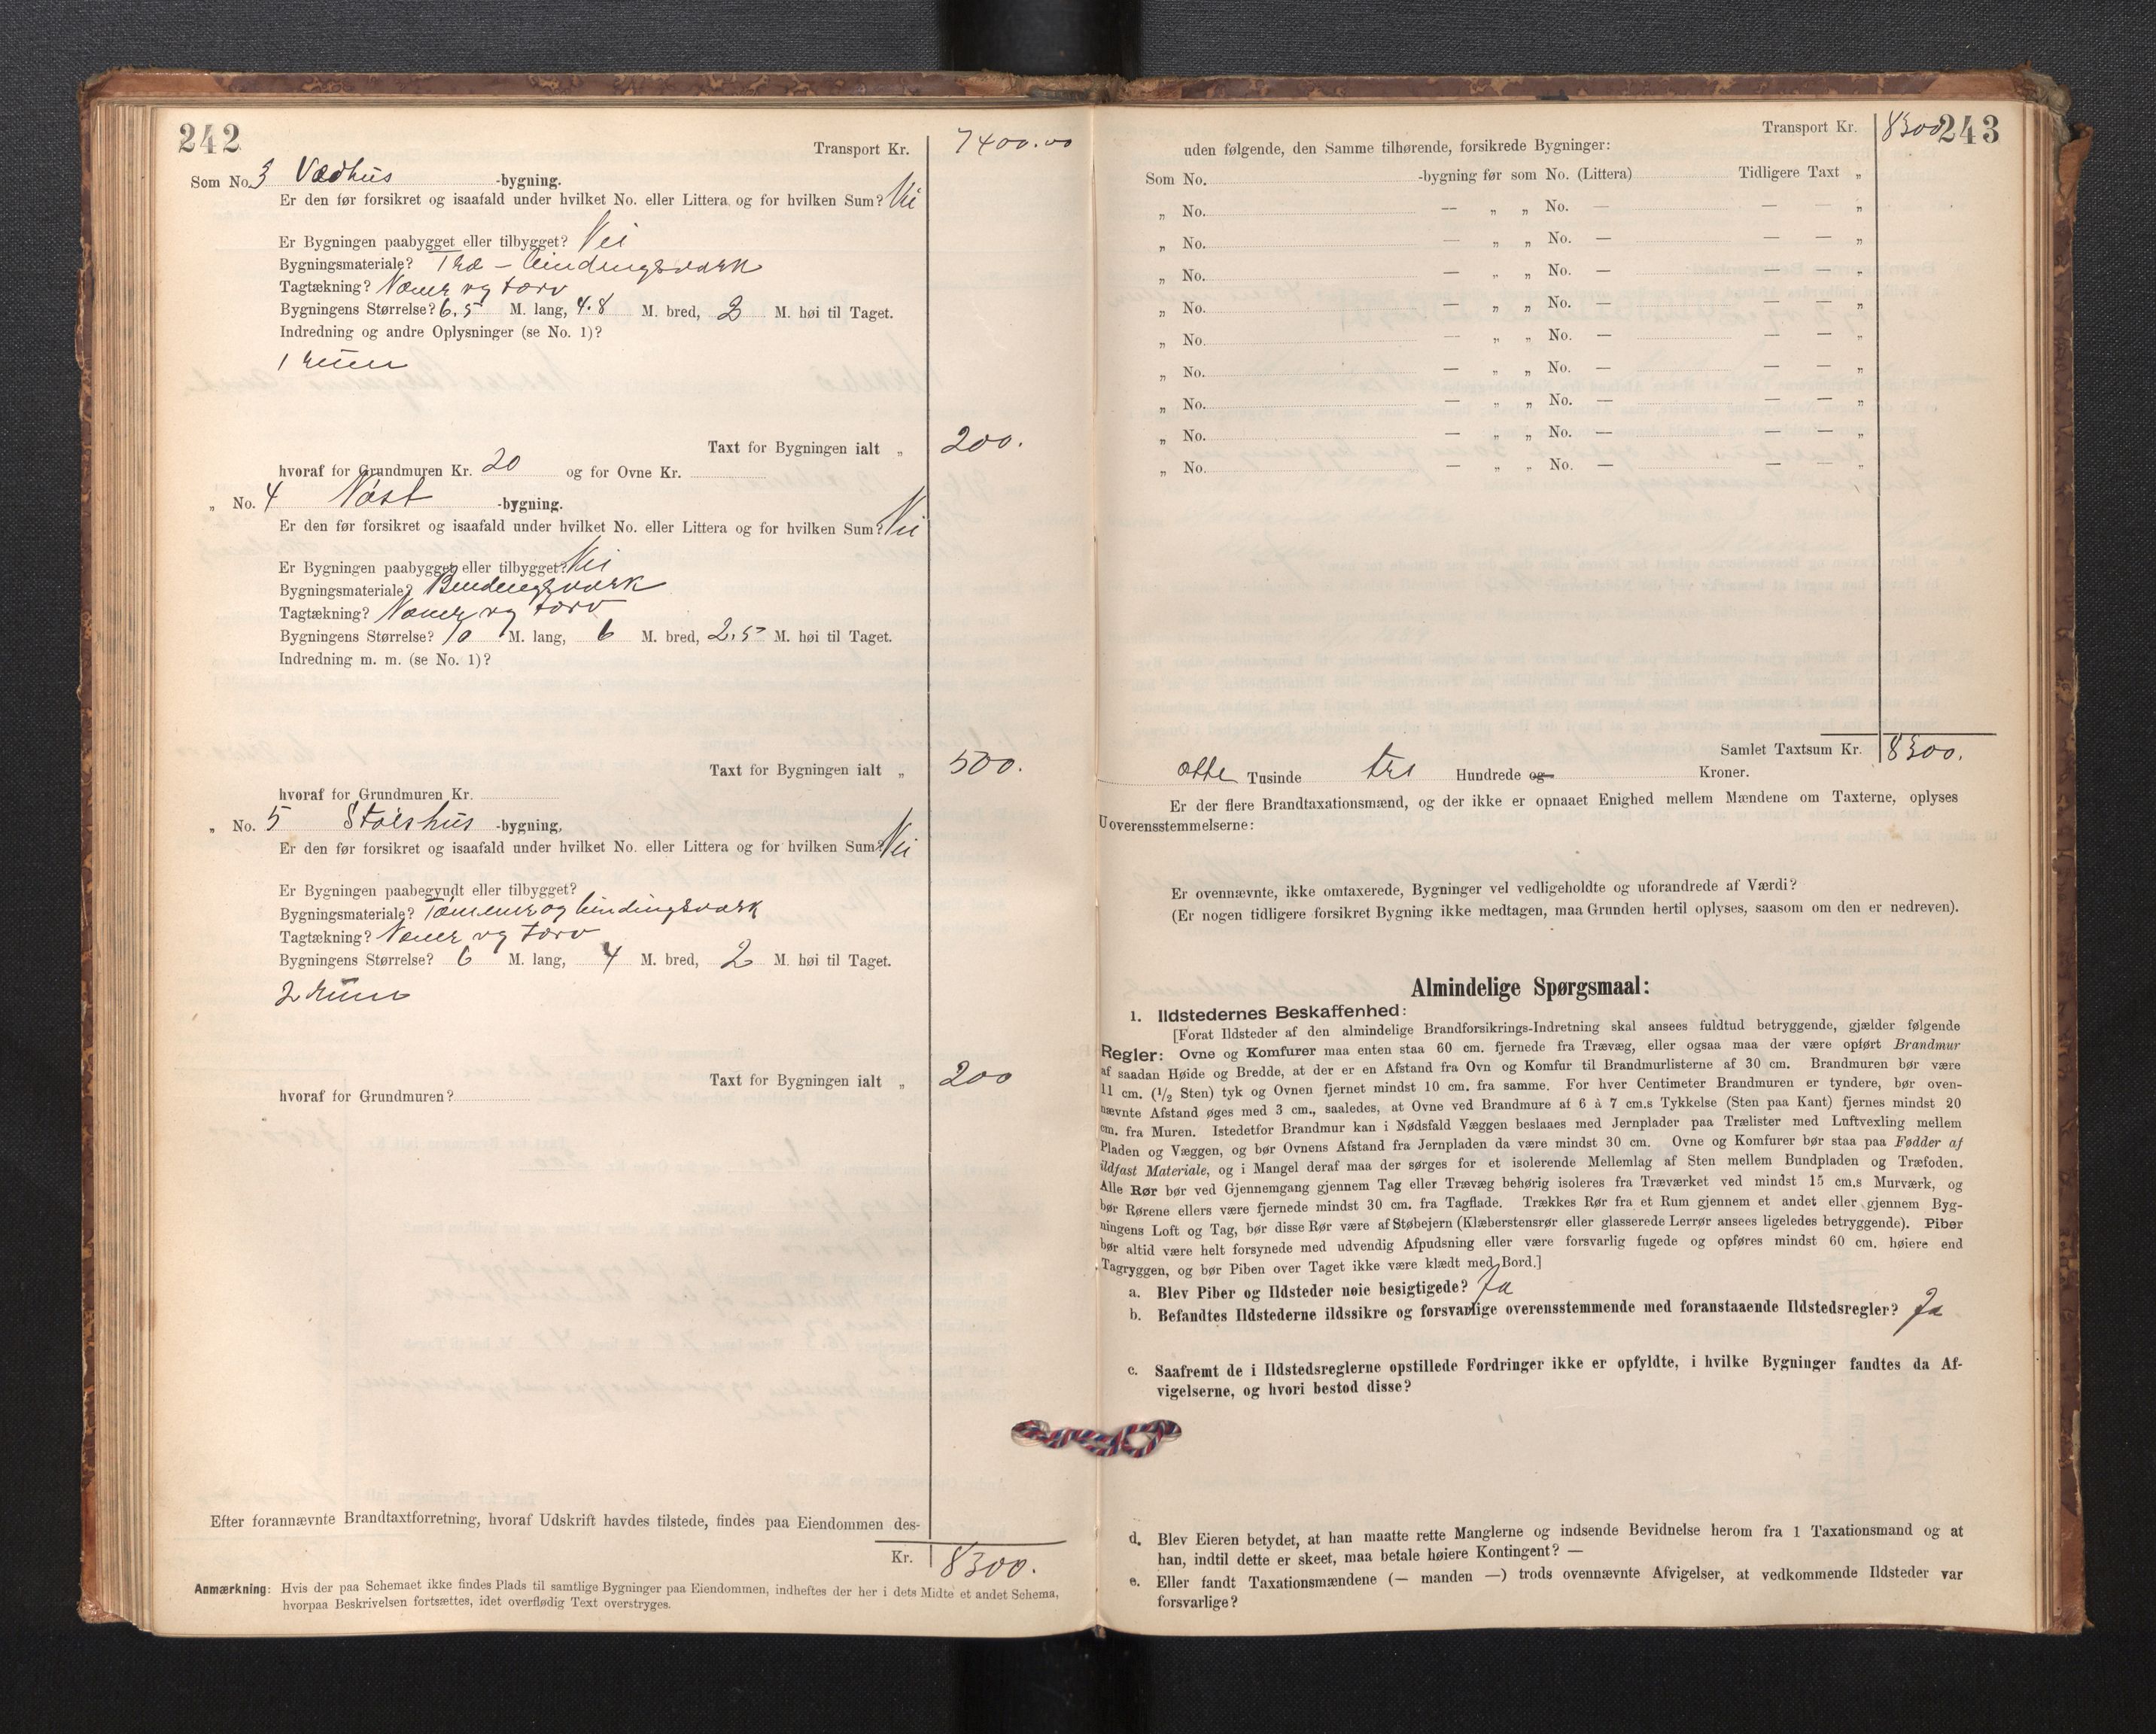 242
Transport Kr. 7400.00
Som No. 3 Vedhus -bygning.
Er den før forsikret og isaafald under hvilket No. eller Littera og for hvilken Sum? Nei
Er Bygningen paabygget eller tilbygget? Nei
Bygningsmateriale? Træ – bindingsværk
Tagtækning? Næver og torv
Bygningens Størrelse? 6,5 M. lang, 4.8 M. bred, 3 M. høi til Taget.
Indredning og andre Oplysninger (se No. 1)?
1 rum
Taxt for Bygningen ialt „ 200.
hvoraf for Grundmuren Kr. 20 og for Ovne Kr.
„ No. 4 Nøst -bygning.
Er den før forsikret og isaafald under hvilket No. eller Littera og for hvilken Sum? Nei
Er Bygningen paabygget eller tilbygget? Nei
Bygningsmateriale? Bindingsværk
Tagtækning? Næver og torv
Bygningens Størrelse? 10 M. lang, 6 M. bred, 2.5 M. høi til Taget.
Indredning m. m. (se No. 1)?
Taxt for Bygningen ialt „ 500.
hvoraf for Grundmuren Kr.
„ No. 5 Støls hus -bygning,
Er den før forsikret og isaafald under hvilket No. eller Littera og for hvilken Sum? Nei
Er Bygningen paabegyndt eller tilbygget?
Bygningsmateriale? Tømmer og bindingsværk
Tagtækning? Næver og torv
Bygningens Størrelse? 6 M. lang, 4 M. bred, 2 M. høi til Taget.
2 rum
Taxt for Bygningen ialt „ 200
hvoraf for Grundmuren?
Efter forannævnte Brandtaxtforretning, hvoraf Udskrift havdes tilstede, findes paa Eiendommen des-
Kr. 8300.
Anmærkning: Hvis der paa Schemaet ikke findes Plads til samtlige Bygninger paa Eiendommen, indheftes der her i dets Midte et andet Schema,
hvorpaa Beskrivelsen fortsættes, idet overflødig Text overstryges.
Transport Kr. 8300 243
uden følgende, den Samme tilhørende, forsikrede Bygninger:
Som No. -bygning før som No. (Littera) Tidligere Taxt „
„ No. — „ „ No. — — — „
„ No. — „ „ No. — — — „
„ No. — „ „ No. — — — „
„ No. — „ „ No. — — — „
„ No. — „ „ No. — — — „
„ No. — „ „ No. — — — „
„ No. — „ „ No. — — — „
„ No. — „ „ No. — — — „
„ No. — „ „ No. — — — „
Samlet Taxtsum Kr. 8300.
otte Tusinde tre Hundrede og Kroner.
Er der flere Brandtaxationsmænd, og der ikke er opnaaet Enighed mellem Mændene om Taxterne, oplyses
Uoverensstemmelserne:
Er ovennævnte, ikke omtaxerede, Bygninger vel vedligeholdte og uforandrede af Værdi?
(Er nogen tidligere forsikret Bygning ikke medtagen, maa Grunden hertil oplyses, saasom om den er nedreven).
Almindelige Spørgsmaal:
1. Ildstedernes Beskaffenhed:
[Forat Ildsteder af den almindelige Brandforsikrings-Indretning skal ansees fuldtud betryggende, gjælder følgende
Regler: Ovne og Komfurer maa enten staa 60 cm. fjernede fra Trævæg, eller ogsaa maa der være opført Brandmur
af saadan Høide og Bredde, at der er en Afstand fra Ovn og Komfur til Brandmurlisterne af 30 cm. Brandmuren bør være
11 cm. (1/2 Sten) tyk og Ovnen fjernet mindst 10 cm. fra samme. For hver Centimeter Brandmuren er tyndere, bør oven-
nævnte Afstand øges med 3 cm., saaledes, at Ovne ved Brandmure af 6 à 7 cm.s Tykkelse (Sten paa Kant) fjernes mindst 20
cm. fra Muren. Istedetfor Brandmur kan i Nødsfald Væggen beslaaes med Jernplader paa Trælister med Luftvexling mellem
Pladen og Væggen, og bør Ovnens Afstand fra Jernpladen da være mindst 30 cm. Ovne og Komfurer bør staa paa Fødder af
ildfast Materiale, og i Mangel deraf maa der sørges for et isolerende Mellemlag af Sten mellem Bundpladen og Træfoden.
Alle Rør bør ved Gjennemgang gjennem Tag eller Trævæg behørig isoleres fra Træværket ved mindst 15 cm.s Murværk, og
bør Rørene ellers være fjernede mindst 30 cm. fra Tagflade. Trækkes Rør fra et Rum gjennem et andet eller gjennem Byg-
ningens Loft og Tag, bør disse Rør være af Støbejern (Klæberstensrør eller glasserede Lerrør ansees ligeledes betryggende). Piber
bør altid være helt forsynede med udvendig Afpudsning eller være forsvarlig fugede og opføres mindst 60 cm. høiere end
Tagryggen, og bør Piben over Taget ikke være klædt med Bord.]
a. Blev Piber og Ildsteder nøie besigtigede? Ja
b. Befandtes Ildstederne ildssikre og forsvarlige overensstemmende med foranstaaende Ildstedsregler? Ja
c. Saafremt de i Ildstedsreglerne opstillede Fordringer ikke er opfyldte, i hvilke Bygninger fandtes da Af-
vigelserne, og hvori bestod disse?
d. Blev Eieren betydet, at han maatte rette Manglerne og indsende Bevidnelse herom fra 1 Taxationsmand og at
han, indtil dette er skeet, maa betale høiere Kontingent? —
e. Eller fandt Taxationsmændene (— manden —) trods ovennævnte Afvigelser, at vedkommende Ildsteder var
forsvarlige?